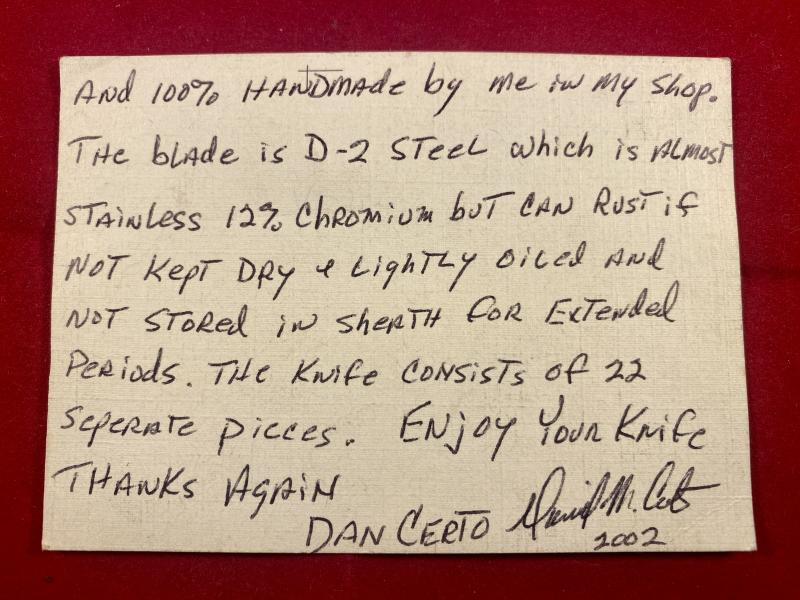 And 100% HANDMADE by me in my shop.
THE blade is D-2 STEEL which is ALMOST
STAINLess 12% Chromium buT CAN RusT if
NOT KepT DRy & LighTLy oiled AND
NOT STORed in sheATH foR ExTended
PeRiods. THE Knife CONSISTS of 22
SepeRATE pieces. ENjoy YouR Knife
THANKS AgAiN
DAN CERTO
2002